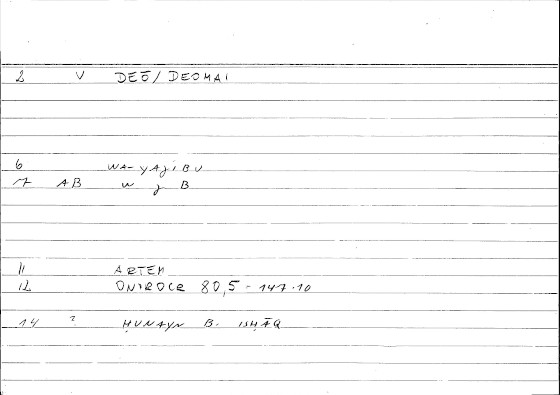 2 V DEŌ/DEOMAI
6 WA-YAJIBU
7 AB W J B
11 ARTEM
12 ONIROCR 80,5 - 147.10
14 ? ḤUNAYN B. ISḤĀQ